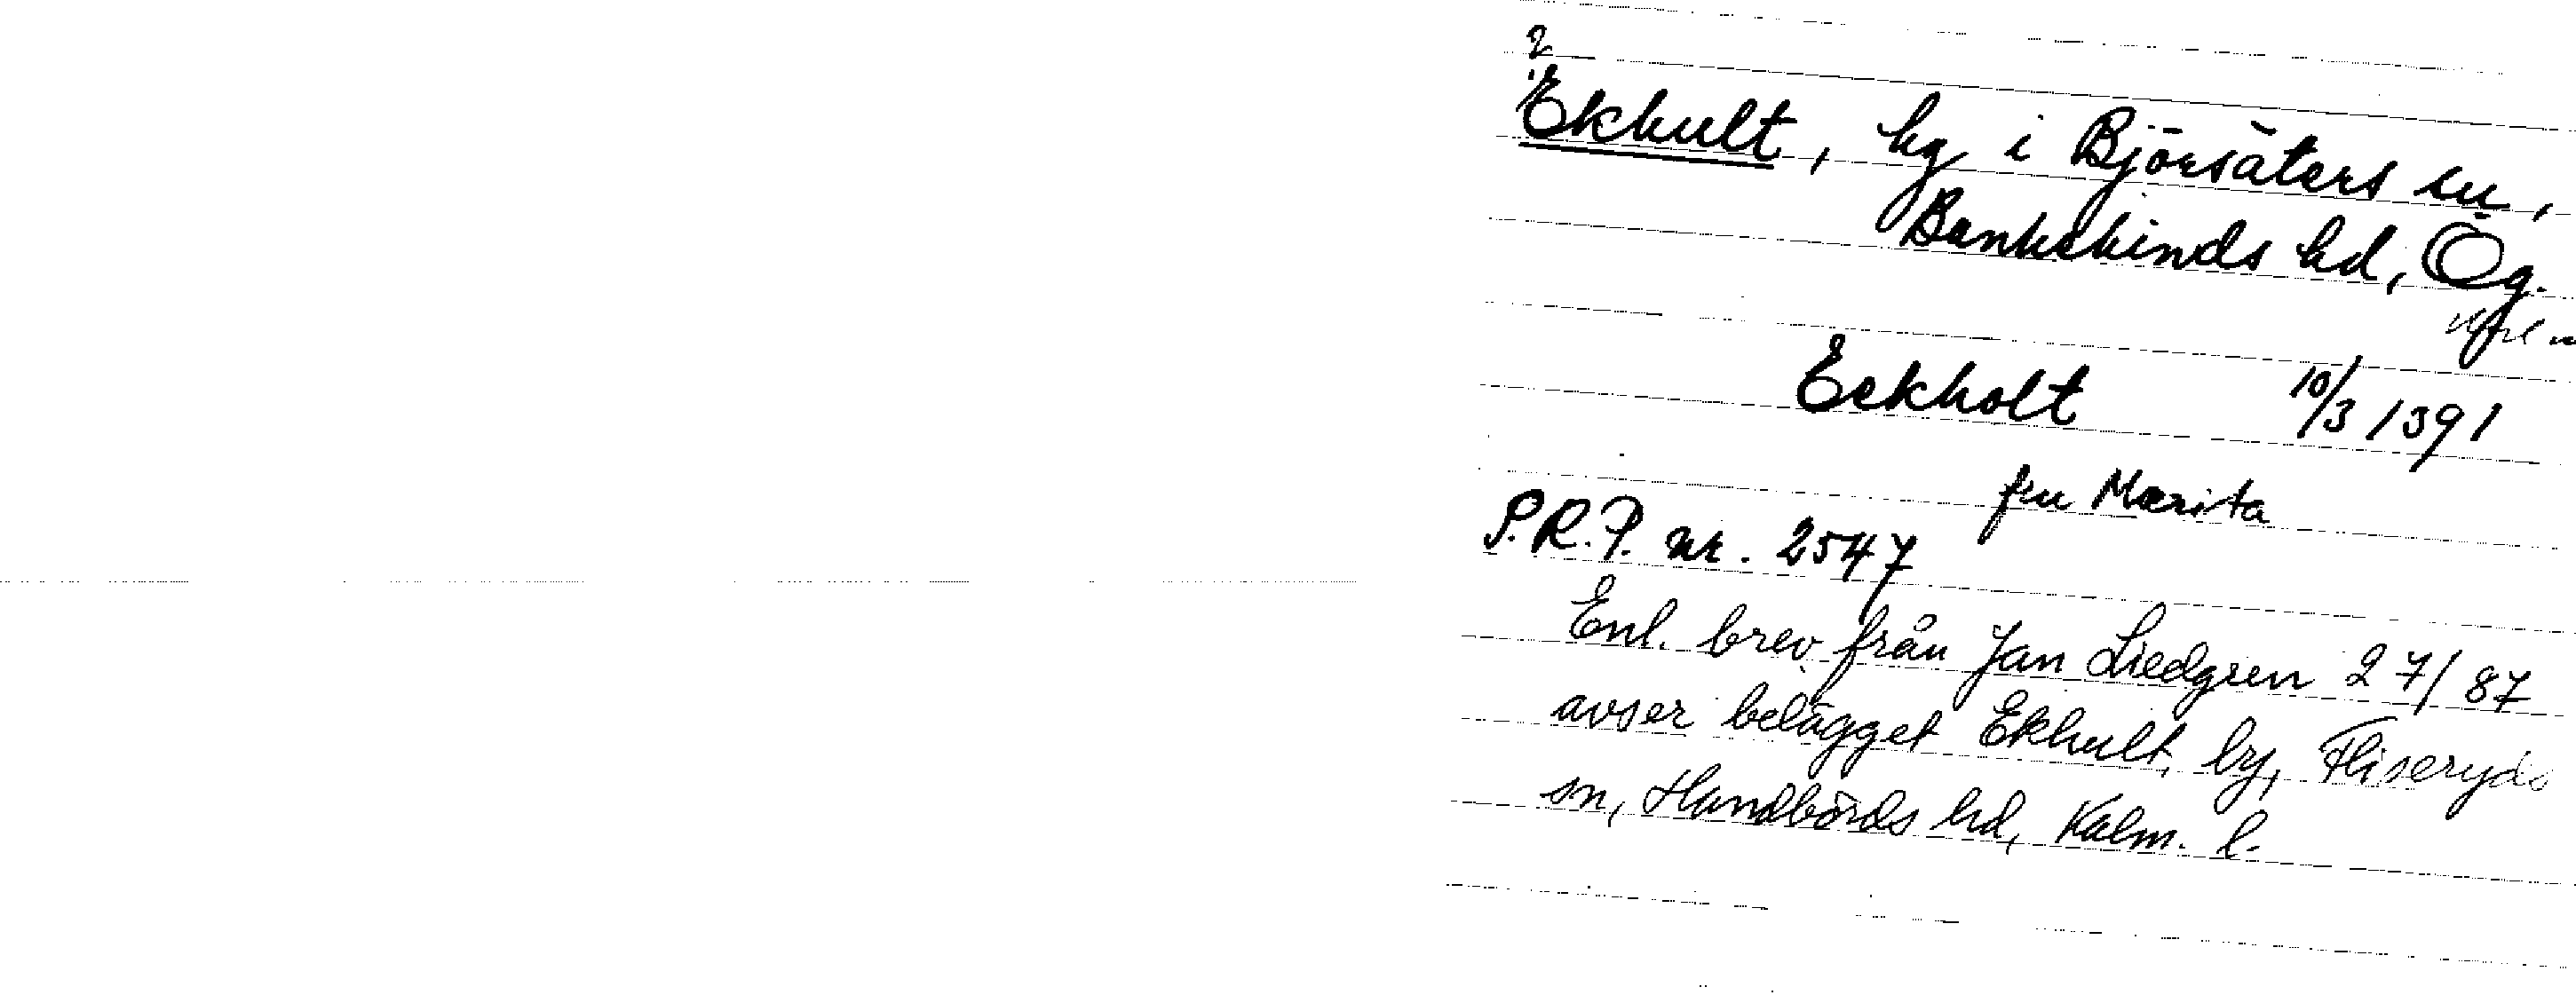 ?
Ekhult, hg i Björsäters sn,
Bankekinds hd, Ög.
Eekholt 10/3 1391
fru Mærita
S.R.P. nr. 2547
Enl. brev från Jan Liedgren 27/87
avser belägget Ekhult, by, Fliseryds
sn, Handbörds hd, Kalm. l.